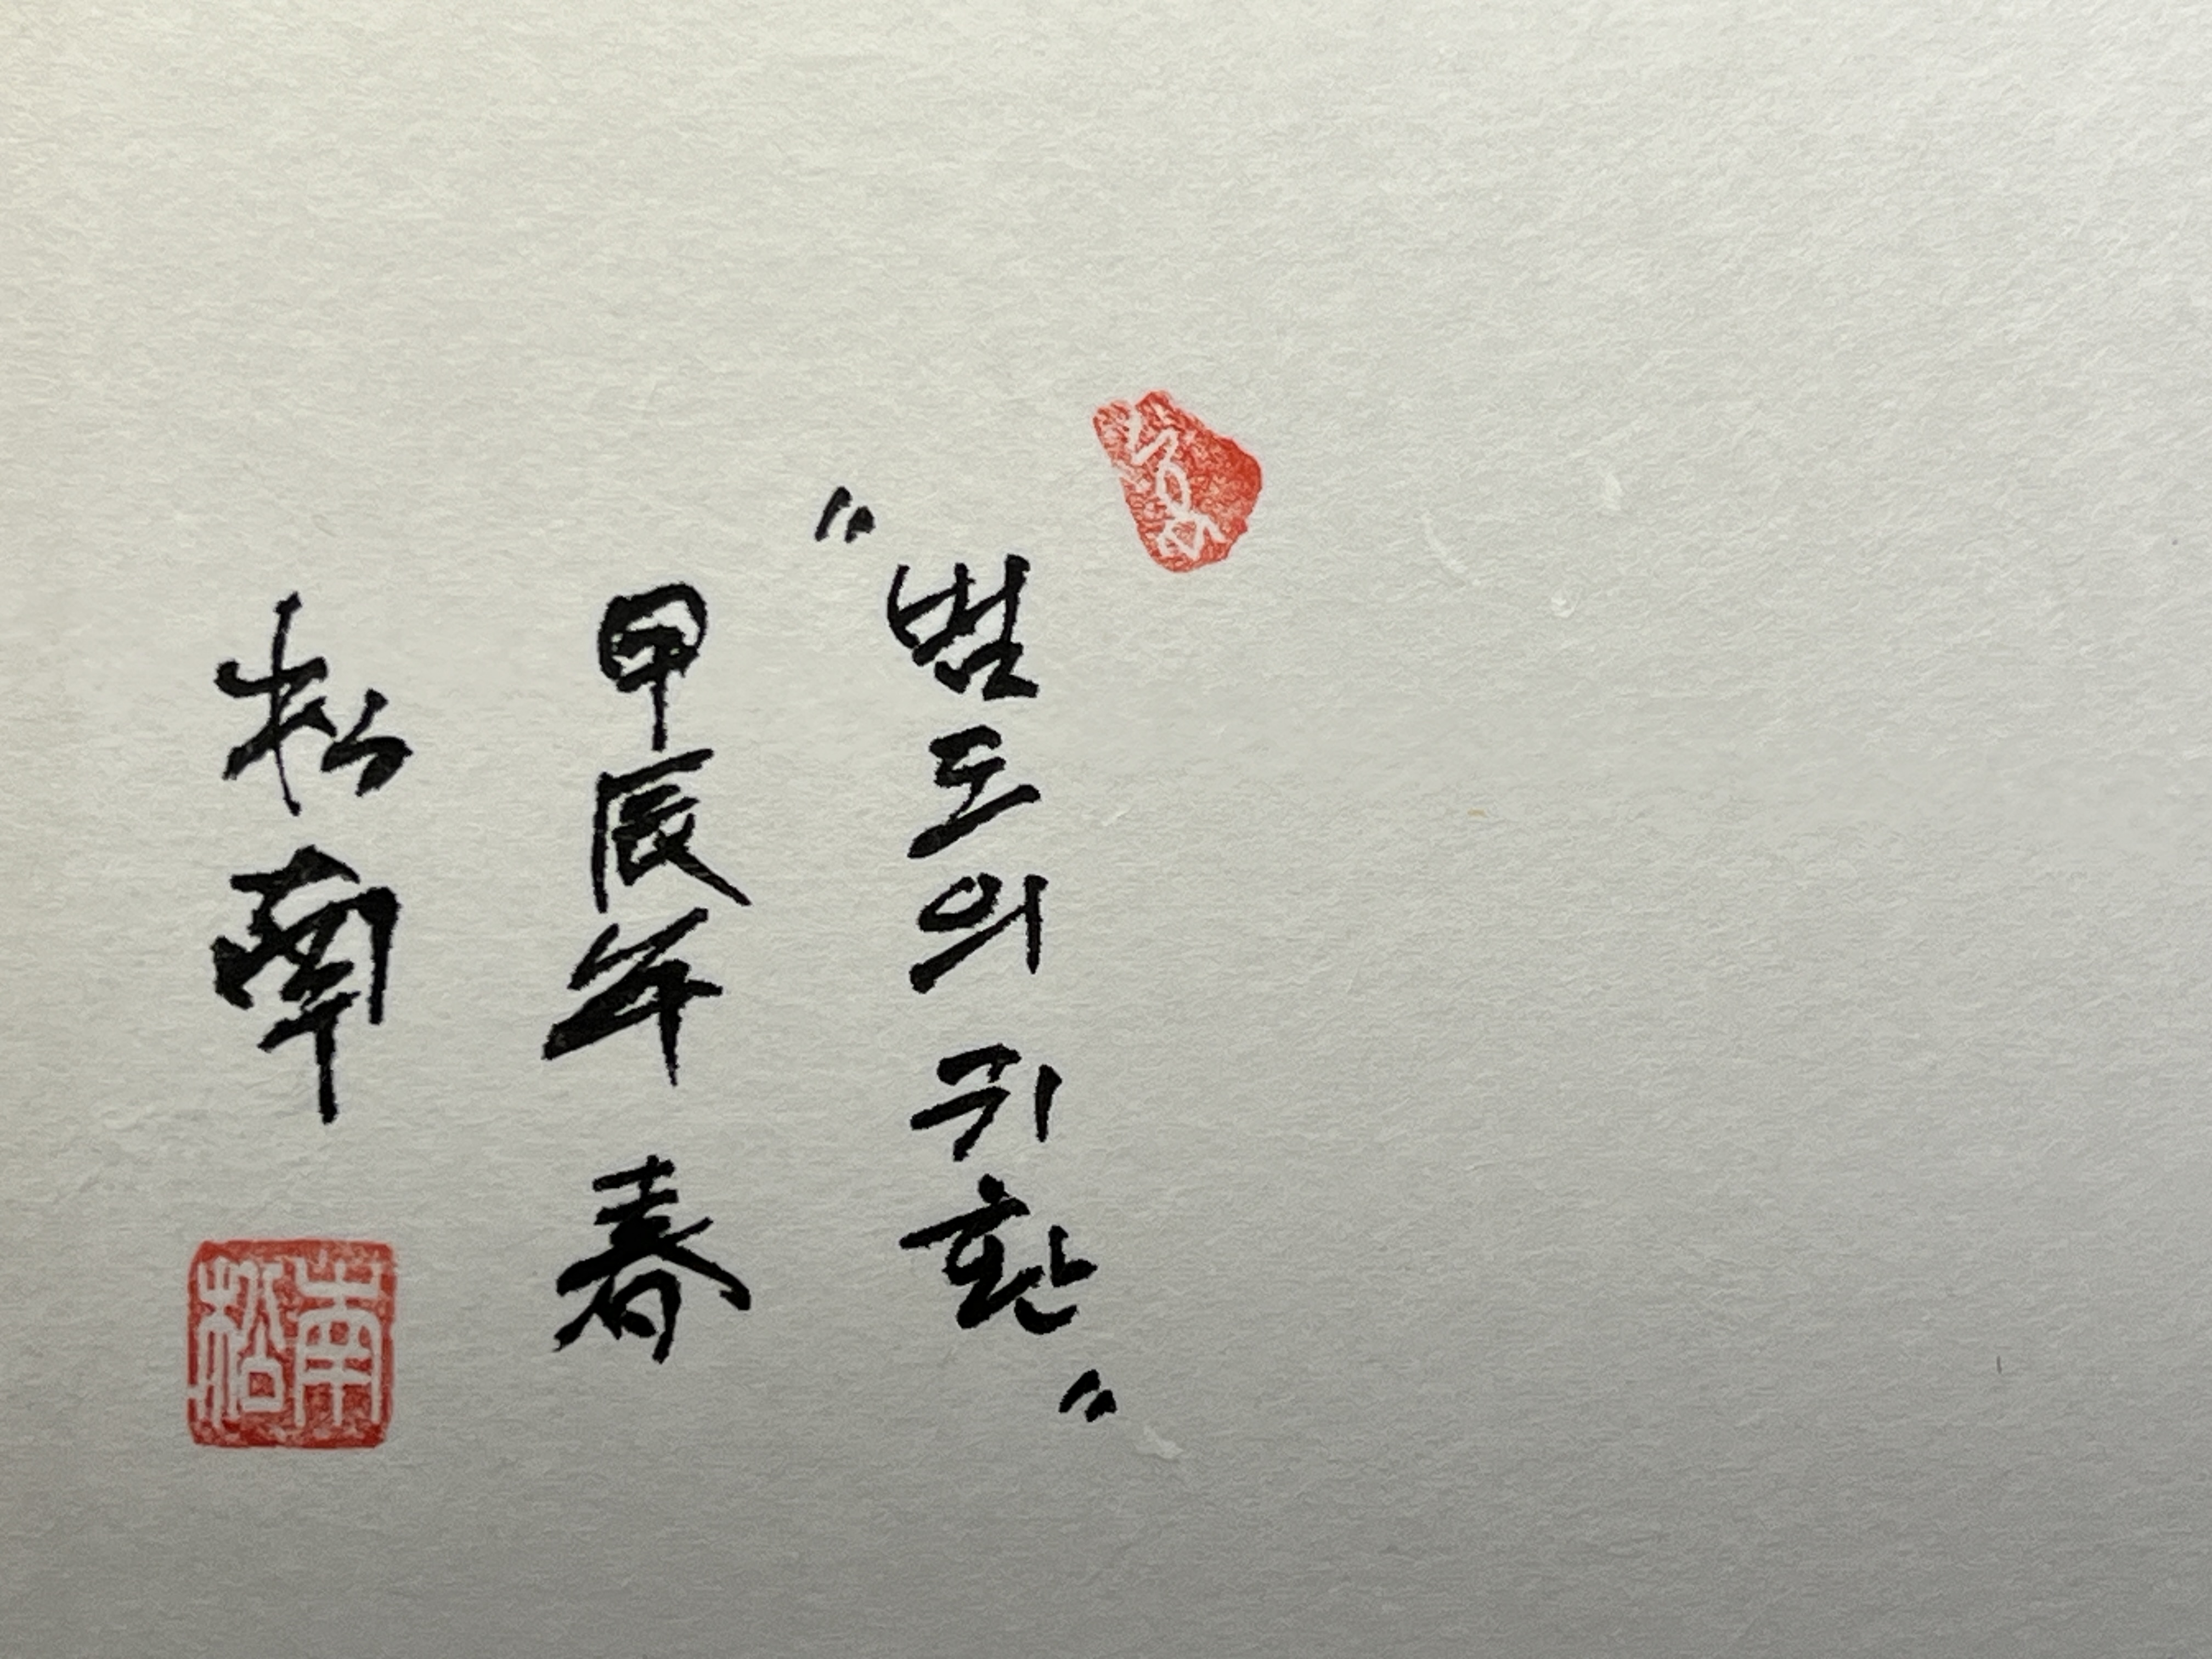 "범도의 귀환"
甲辰年 春
松南
松南